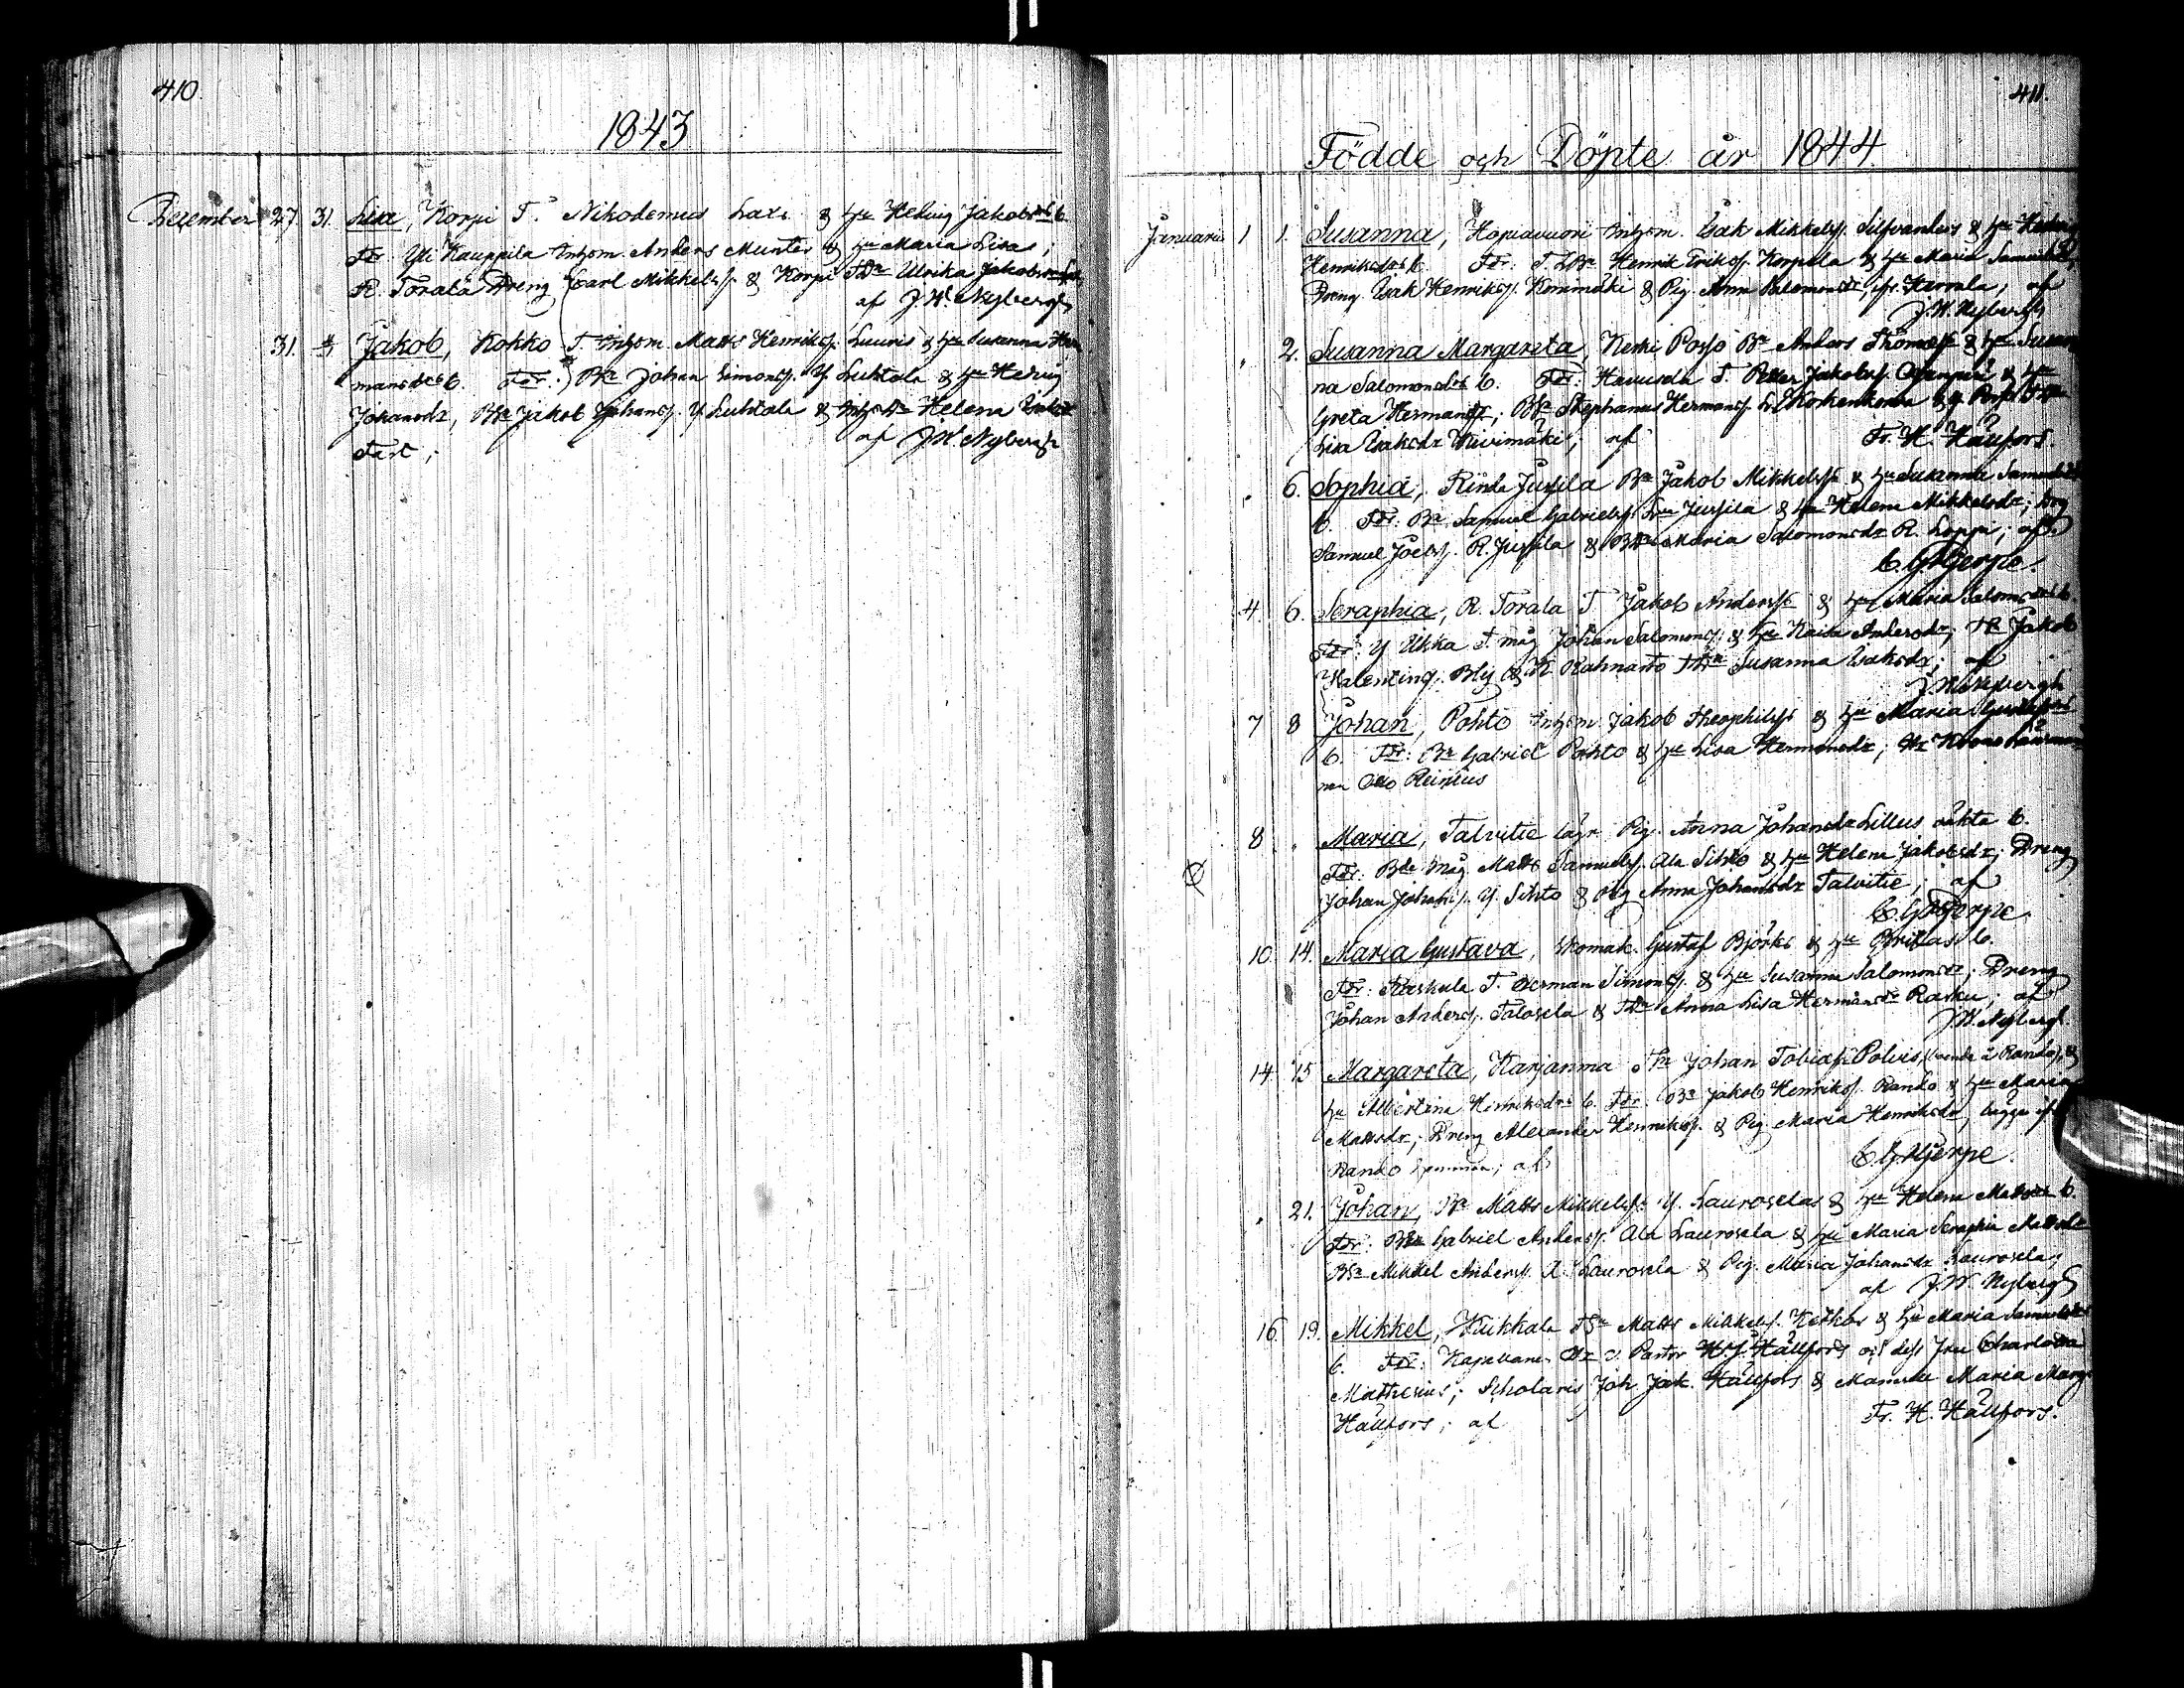 410.
1843
December 27. 31. Lisa, Korpi T. Nikodemus Laxi & hu Hedvig Jakobsdrs b.
Fdr. Yli Kauppila Inhsm. Anders Munter & hu Maria Lisa;
R. Torala Dreng Carl Mikkelsf. & Korpi TDr Ulrika Jakobsdr
af J.W. Nybergh
31. Jakob, Kokko T. Inhsm. Matts Henriksf. Luuris & hu Susanna Her-
mansdrs b. Fdr: Br Johan Simonsf. Y. Luhtala & hu Hedvig
Johansdr, BSn Jakob Johansf. Y. Luhtala & InhsDr Helena
af J.W. Nybergh
411.
Födde och Döpte år 1844
Januarii 1 1. Susanna, Hopiavuori Inhsm. Isak Mikkelsf. Silfvanders & hu
Henriksdrs b. Fdr: T. Henrik Eriksf. Korpela & hu Maria
Dreng Isak Henriksf. Kenimäki & Pig. Anna Salomonsdr, ifr. Harrala; af
J.W. Nybergh
" 2. Susanna Margareta, Keski Passo Br Anders Thomæsf. & hu Susan
na Salomonsdrs b. Fdr: Havusela T. Petter Jakobsf. & hu
Greta Hermansdr; BSn Stephanus Hermansf.
Lisa Isaksdr Kivimäki; af Fr. H. Hällfors
" 6. Sophia, Rinda Jussila Br Jakob Mikkelsf. & hu Susanna
b. Fdr: Br Samuel Gabrielsf. Jussila & hu Helena Mikkelsdr;
Samuel Joelsf. R. Jussila & BDr Maria Salomonsdr R. Loppi; af
C. G. Hjerpe.
4. 6. Seraphia, R. Torala T. Jakob Andersf. & hu Maria
Fdr: Y. Ukka T. måg Johan Salomonsf. & hu Kaisa Andersdr, Jakob
Valentinsf. Bly & K. Rahnasto TDr Susanna Isaksdr; af
J.W. Nybergh
7 8 Johan, Pohto Inhsm. Jakob Theophilsf. & hu Maria
b. Fdr: Br Gabriel Pohto & hu Lisa Hermansdr; Hr Krono Länsman
nen Otto Reinius
8 " Maria, Talvitie lägr. Pig. Anna Johansdr Lillus oäkta b.
Fdr: Bde måg Matts Samuelsf. Ala Sihto & hu Helena Jakobsdr; Dreng
Johan Johansf. Y. Sihto & Pig Anna Johansdr Talvitie; af
C. G. Hjerpe.
10 14. Maria Gustava, Skomak. Gustaf Björks & hu Britas b.
Fdr: Raskula T. Herman Simonsf. & hu Susanna Salomonsdr; Dreng
Johan Andersf. Talosela & TDr Anna Lisa Hermansdr Rasku; af
J.W. Nybergh
14 15 Margareta, Harjanma Johan Tobiasf. Polvis, (boende å Rando), &
hu Albertina Henriksdrs b. Fdr: Br Jakob Henriksf. Rando & hu Maria
Mattsdr; Dreng Alexander Henriksf. & Pig Maria Henriksdr, begge ifr
Rando hemman; af C. G. Hjerpe.
" 21. Johan, Br Matts Mikkelsf. Y. Lauroselas & hu Helena Mattsdrs b.
Fdr: Br Gabriel Andersf. Ala Laurosela & hu Maria Seraphia Mattsdr
BSn Mikkel Andersf. A. Laurosela & Pig. Maria Johansdr Laurosela;
af J.W. Nybergh
16 19. Mikkel, Kuikkala TSn Matts Mikkelsf. & hu Maria
b. Fdr: Kapellanen Hr v. Pastor H. J. Hällfors och dess Fru Charlotta
Mathesius; Scholaris Joh. Jak. Hällfors & Mamsell Maria Marg
Hällfors; af Fr. H. Hällfors.